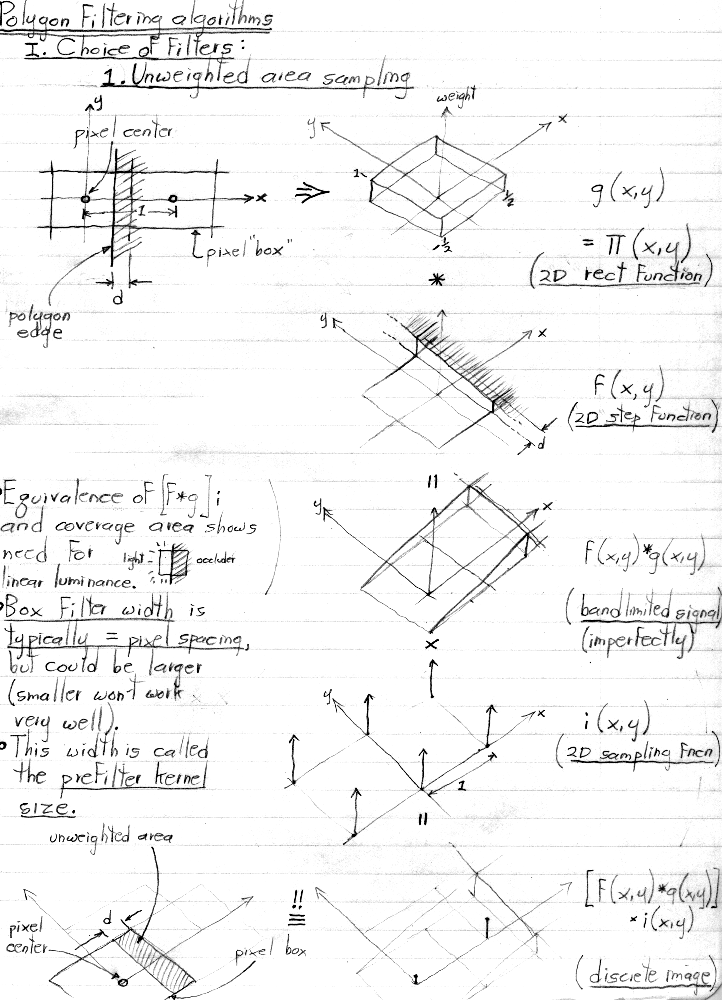 Polygon Filtering algorithms
I. Choice of Filters:
1. Unweighted area sampling
y
pixel center
x
1
pixel "box"
d
polygon
edge
weight
y
x
1
1/2
-1/2
g(x,y)
= Π(x,y)
(2D rect Function)
*
y
x
d
f(x,y)
(2D step Function)
• Equivalence of F[F*g]i
and coverage area shows
need for
linear luminance.
light
occluder
• Box Filter width is
typically = pixel spacing,
but could be larger
(smaller won't work
very well).
• This width is called
the prefilter kernel
size.
=
y
x
F(x,y)*g(x,y)
(bandlimited signal
(imperfectly)
×
y
x
1
i(x,y)
(2D sampling Fncn)
=
unweighted area
d
pixel
center
pixel box
!!
≡
1
[F(x,y)*g(x,y)]
• i(x,y)
(discrete image)